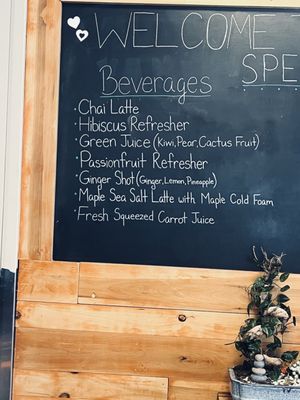 WELCOME
SPE
Beverages
· Chai Latte
· Hibiscus Refresher
· Green Juice (Kiwi, Pear, Cactus Fruit)
· Passionfruit Refresher
· Ginger Shot (Ginger, Lemon, Pineapple)
· Maple Sea Salt Latte with Maple Cold Foam
· Fresh Squeezed Carrot Juice